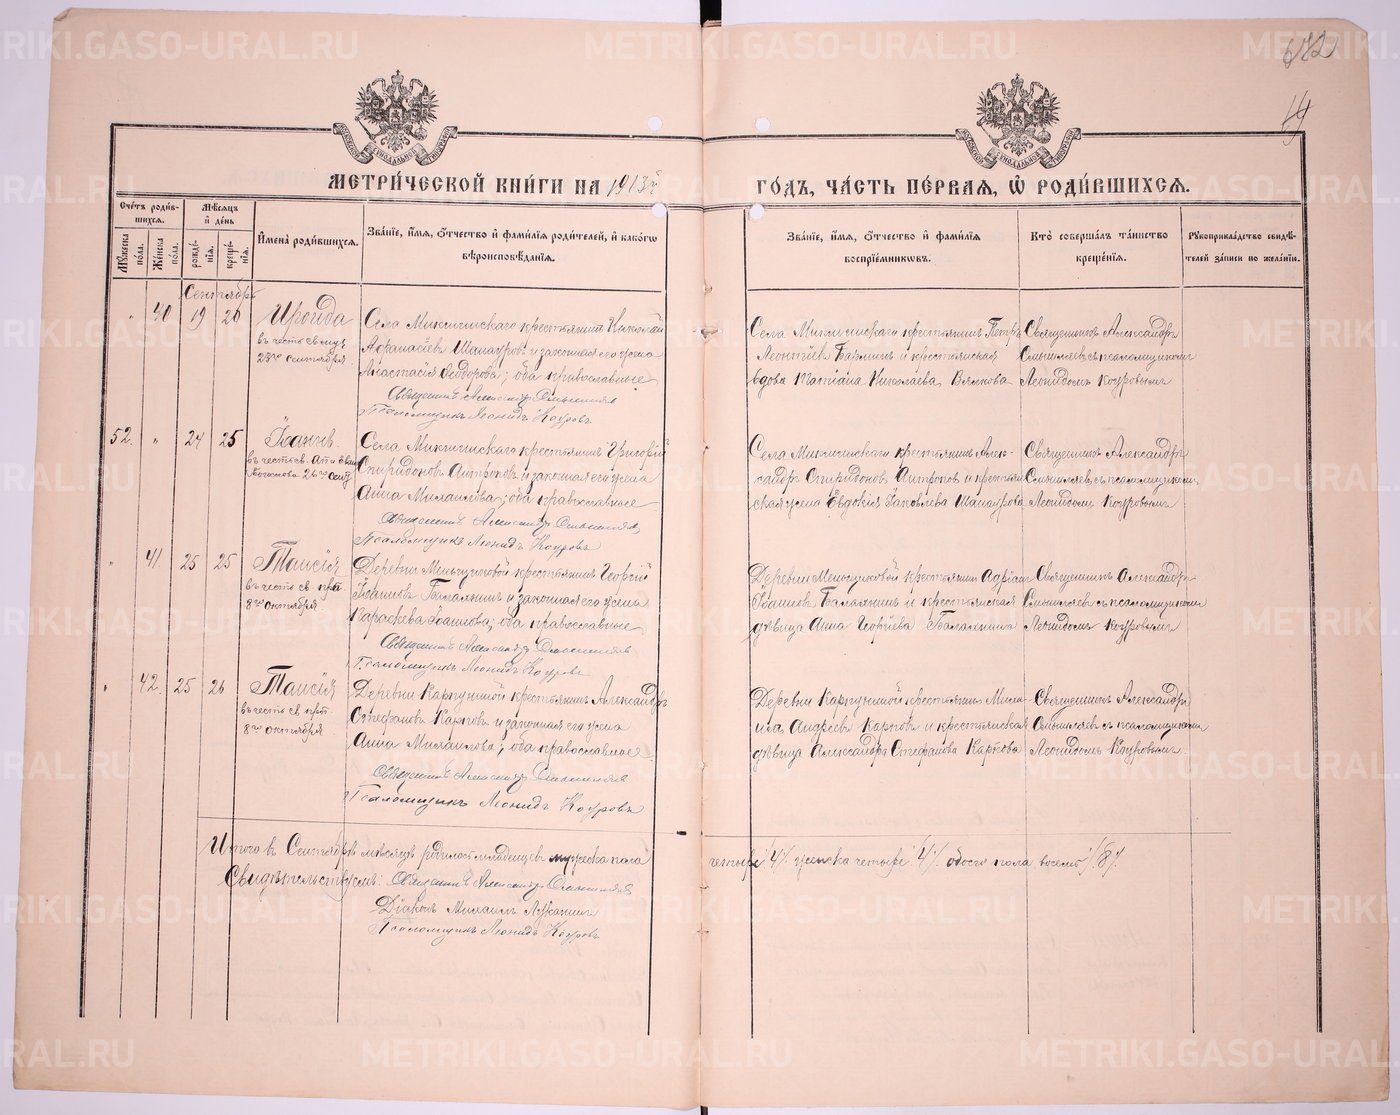 682
19
МЕТРИ́ЧЕСКОЙ КНИ́ГИ НА 1913 й
ГО́ДЪ, ЧА́СТЬ ПЕ́РВАЯ, Ѿ РОДИ́ВШИХСѦ.
Сче́тъ роди́в-
шихся.
Мѣ́сяцъ
и҆ де́нь
Мꙋ́жеска
по́ла.
Же́нска
по́ла.
рожде́-
нїѧ.
креще́-
нїѧ.
И҆мена̀ роди́вшихся.
Зва́нїе, и҆́мя, о҆́тчество и҆ фами́лїя роди́телей, и҆ како́гѡ
вѣроисповѣ́данїя.
Зва́нїе, и҆́мя, о҆́тчество и҆ фами́лїя
воспрїе́мникѡвъ.
Кто̀ соверша́лъ та́инство
креще́нїя.
Рꙋкоприкла́дство свидѣ́-
телей за́писи по жела́нїю.
Сентябрь
" 40 19 20 Ироида
въ честь св муч
23го сентября
Села крестьянинъ Николай
Афанасіевъ Шапауровъ и законная его жена
Анастасія Ѳеодорова; оба православные
Священникъ Александръ
Псаломщикъ Леонидъ Коуровъ
Села крестьянинъ Петръ
Леонтіевъ и крестьянская
вдова Татіана Николаева Вяткова
Священникъ Александръ
съ псаломщикомъ
Леонидомъ Коуровымъ
52 " 24 25 Іоаннъ
въ честь св. Ап и Еван
Богослова 26го сент
Села крестьянинъ Григорій
Спиридоновъ Антроповъ и законная его жена
Анна Михаилова; оба православные
Священникъ Александръ
Псаломщикъ Леонидъ Коуровъ
Села крестьянинъ Алек-
сандръ Спиридоновъ Антроповъ и крестьян
ская жена Евдокія Іаковлева Шапаурова
Священникъ Александръ
съ псаломщикомъ
Леонидомъ Коуровымъ
" 41 25 25 Таисія
въ честь св преп
8го октября
Деревни Меньшиковой крестьянинъ Георгій
Іоанновъ Балахнинъ и законная его жена
Параскева Іоаннова; оба православные
Священникъ Александръ
Псаломщикъ Леонидъ Коуровъ
Деревни Меньшиковой крестьянинъ Адріанъ
Іоанновъ Балахнинъ и крестьянская
дѣвица Анна Георгіева Балахнина
Священникъ Александръ
съ псаломщикомъ
Леонидомъ Коуровымъ
" 42. 25 26 Таисія
въ честь св преп.
8го октября
Деревни Карпушиной крестьянинъ Александръ
Стефановъ Карповъ и законная его жена
Анна Михаилова; оба православные
Священникъ Александръ
Псаломщикъ Леонидъ Коуровъ
Деревни Карпушиной крестьянинъ Миха-
илъ Андреевъ Карповъ и крестьянская
дѣвица Александра Стефанова Карпова
Священникъ Александръ
съ псаломщикомъ
Леонидомъ Коуровымъ.
Итого въ Сентябрѣ мѣсяцѣ родилось младенцевъ мужеска пола
четыре /4/. женска четыре /4/. обоего пола восемь /8/.
Свидѣтельствуемъ: Священникъ Александръ
Діаконъ Михаилъ
Псаломщикъ Леонидъ Коуровъ
METRIKI.GASO-URAL.RU